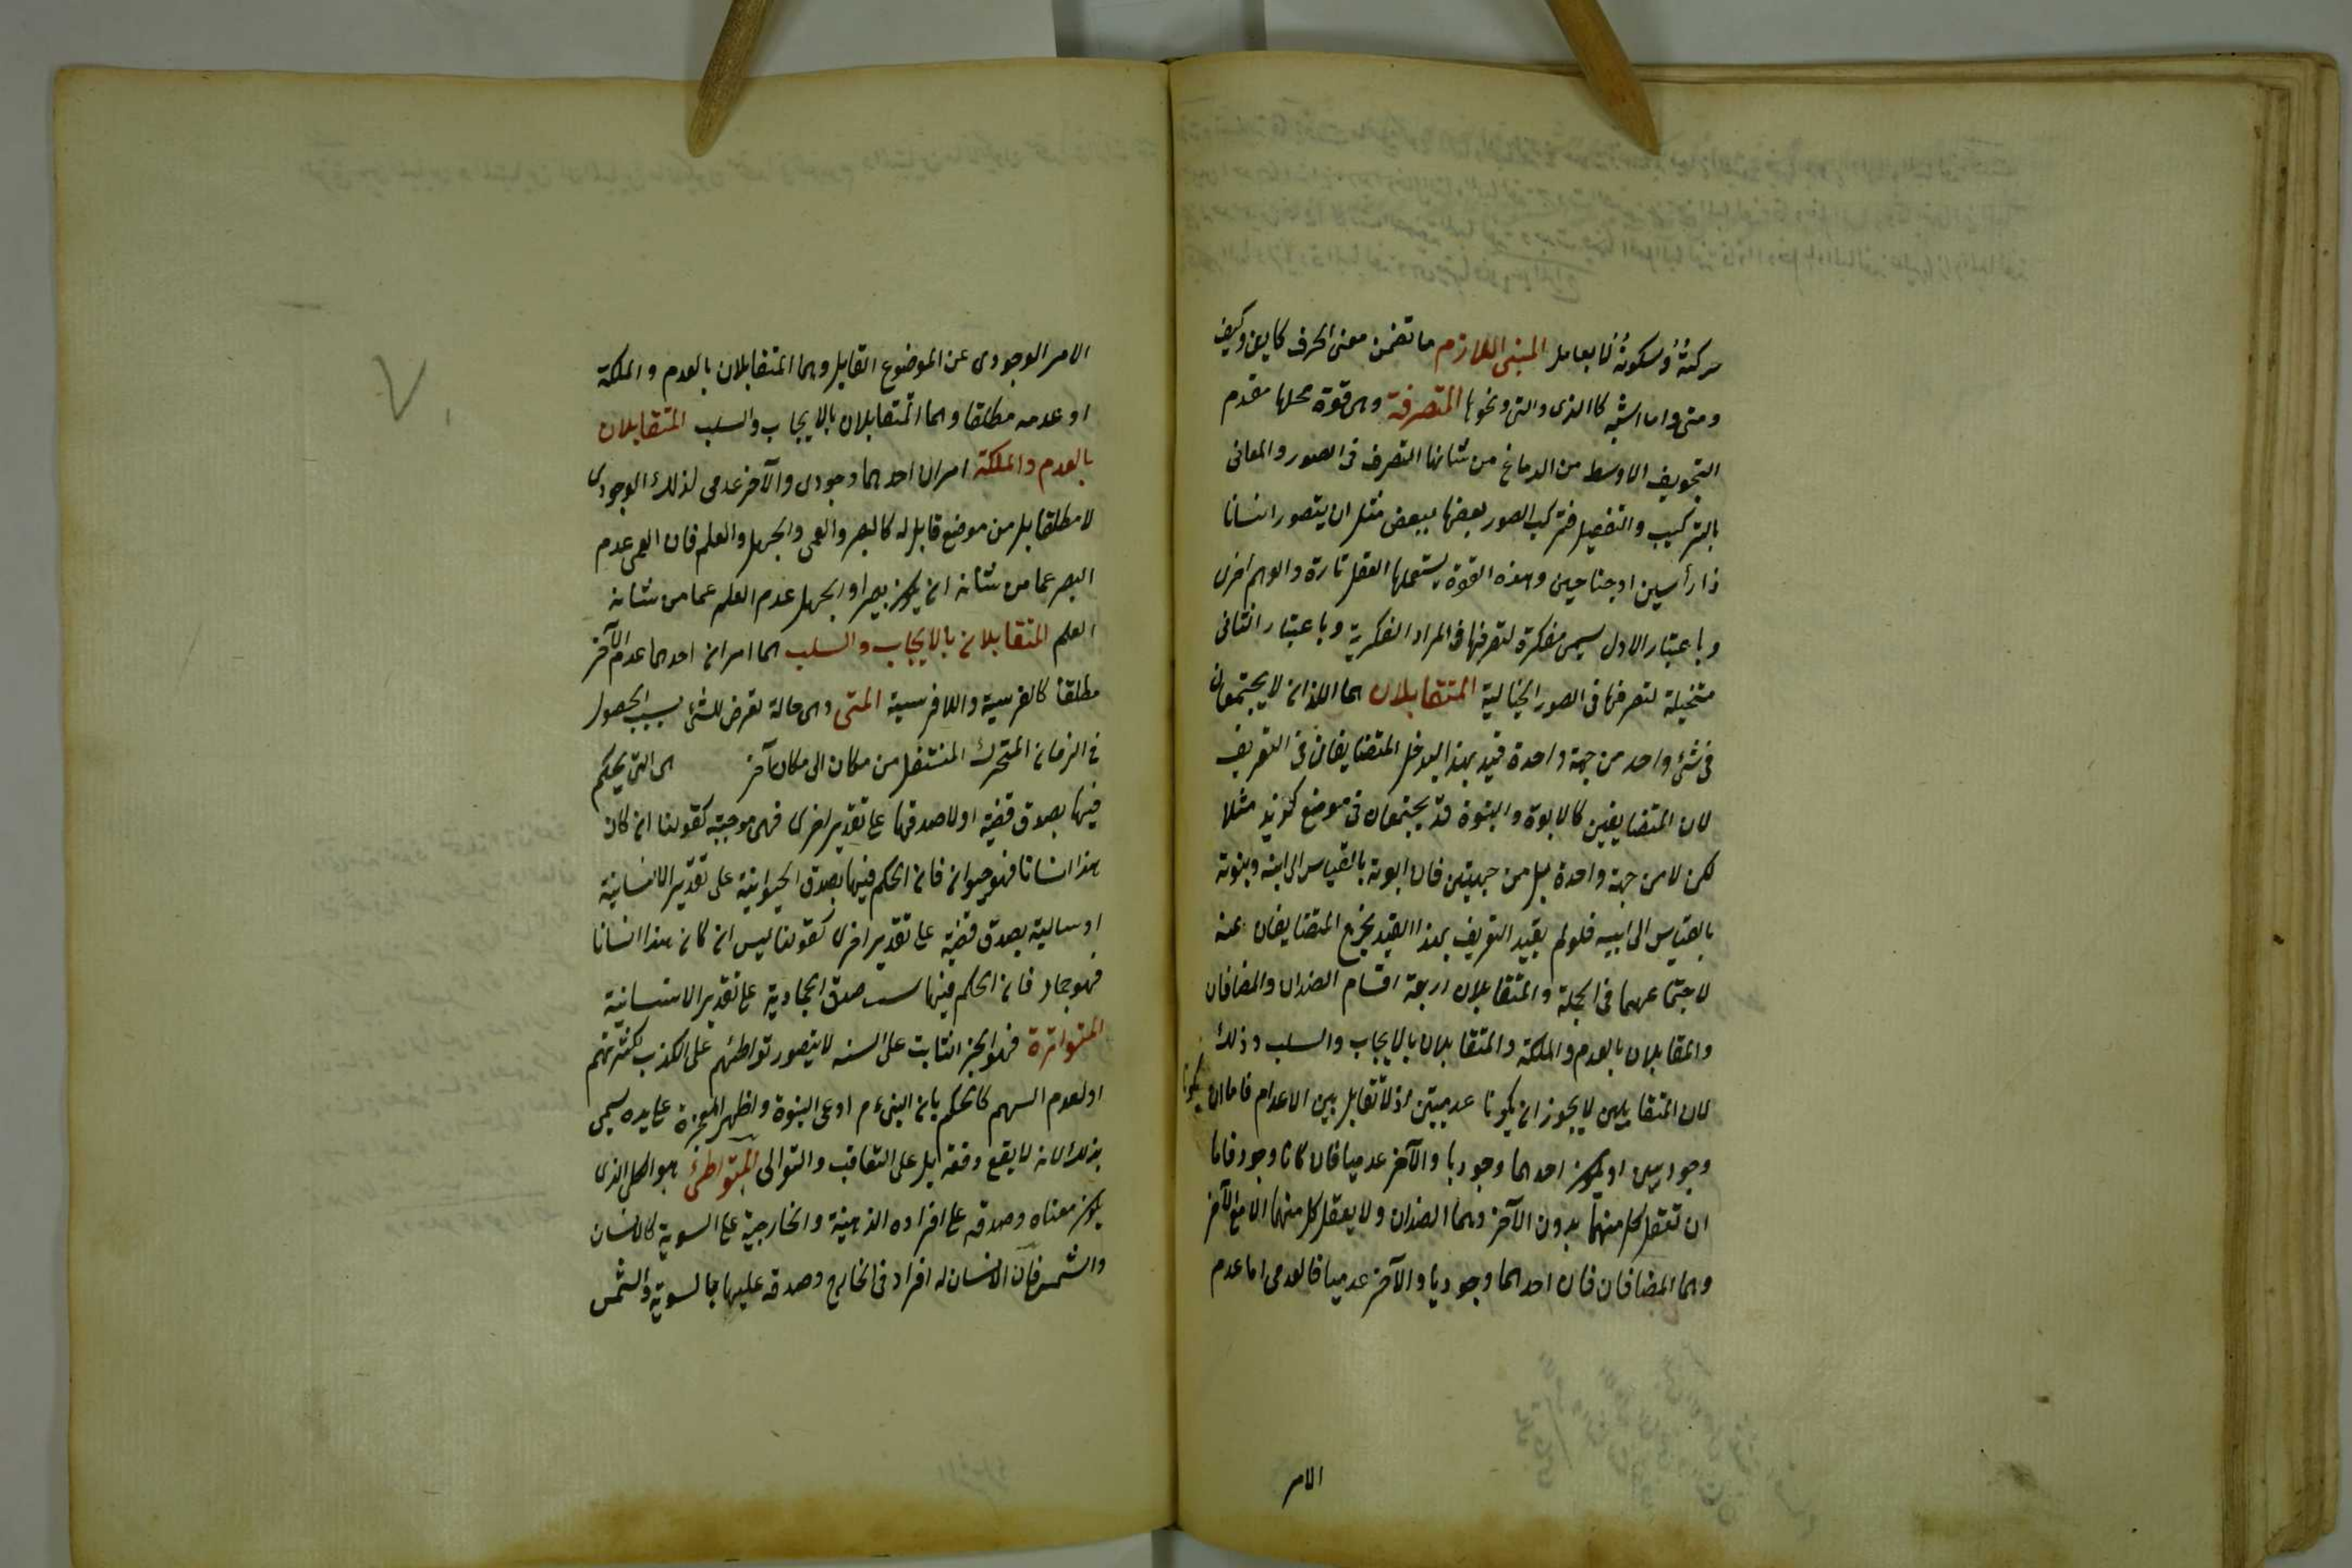 حركتُهُ وسكونُهُ لا بعامل المبنى اللازم ما تضمن معنى الحرف كاين وكيف
ومتى واما اشبه كالذى والتى ونحوها المتصرفة وهى قوة محلها مقدم
التجويف الاوسط من الدماغ من شانها التصرف فى الصور والمعانى
بالتركيب والتفصيل فتركيب الصور بعضها ببعض مثل ان يتصور انسانا
ذا رأسين او جناحين وهذه القوة يستعملها العقل تارة والوهم اخرى
وباعتبار الاول يسمى مفكرة لتصرفها فى المراد الفكرية وباعتبار الثانى
متخيلة لتصرفها فى الصور الخيالية المتقابلان هما اللذان لا يجتمعان
فى شئ واحد من جهة واحدة قيد بهذا ليدخل المتضايفان فى التعريف
لان المتضايفين كالابوة والبنوة قد يجتمعان فى موضع كزيد مثلا
لكن لا من جهة واحدة بل من جهتين فان ابوته بالقياس الى ابنه وبنوته
بالقياس الى ابيه فلو لم يقيد التعريف بهذا القيد يخرج المتضايفان عنه
لاجتماعهما فى الجملة والمتقابلان اربعة اقسام الضدان والمضافان
والمتقابلان بالعدم والملكة والمتقابلان بالايجاب والسلب وذلك
لان المتقابلين لا يجوز ان يكونا عدميين اذ لا تقابل بين الاعدام فاما ان يكونا
وجوديين او يكون احدهما وجوديا والآخر عدميا فان كانا وجود فاما
ان تعقل كل منهما بدون الآخر وهما الضدان ولا يعقل كل منهما الا مع الآخر
وهما المضافان فان احدهما وجوديا والآخر عدميا فالعدمى اما عدم
الامر
الامر الوجودى عن الموضوع القابل وهما المتقابلان بالعدم والملكة
او عدمه مطلقا وهما المتقابلان بالايجاب والسلب المتقابلان
بالعدم والملكة امران احدهما وجودى والآخر عدمى لذلك الوجودى
لا مطلقا بل من موضع قابل له كالبصر والعمى والجهل والعلم فان العمى عدم
البصر عما من شانه ان يكون بصيرا والجهل عدم العلم عما من شانه
العلم المتقابلان بالايجاب والسلب هما امران احدهما عدم الآخر
مطلقا كالفرسية واللافرسية المتى وهى حالة تعرض للشئ بسبب الحصول
فى الزمان المتحرك المنتقل من مكان الى مكان آخر هى التى يحكم
فيها بصدق قضية او لا صدقها على تقدير اخرى فهى موجبته كقولنا ان كان
هذا انسانا فهو حيوان فان الحكم فيها بصدق الحيوانية على تقدير الانسانية
او سالبة بصدق قضية على تقدير اخرى كقولنا ليس ان كان هذا انسانا
فهو جماد فان الحكم فيها سب صدق الجمادية على تقدير الانسانية
المتواترة فهو الخبر الثابت على السنه لا يتصور تواطئهم على الكذب لكثرتهم
او لعدم السهم كالحكم بان النبى ءم ادعى النبوة واظهر المعجزة على يده سمى
بذلك لانه لا يقع دفعة بل على التعاقب والتوالى المتواطئ هو الكلى الذى
يكون معناه وصدقه على افراده الذهنية والخارجية على السوية كالانسان
والشمس فان الانسان له افراد فى الخارج وصدقه عليها بالسوية والشمس